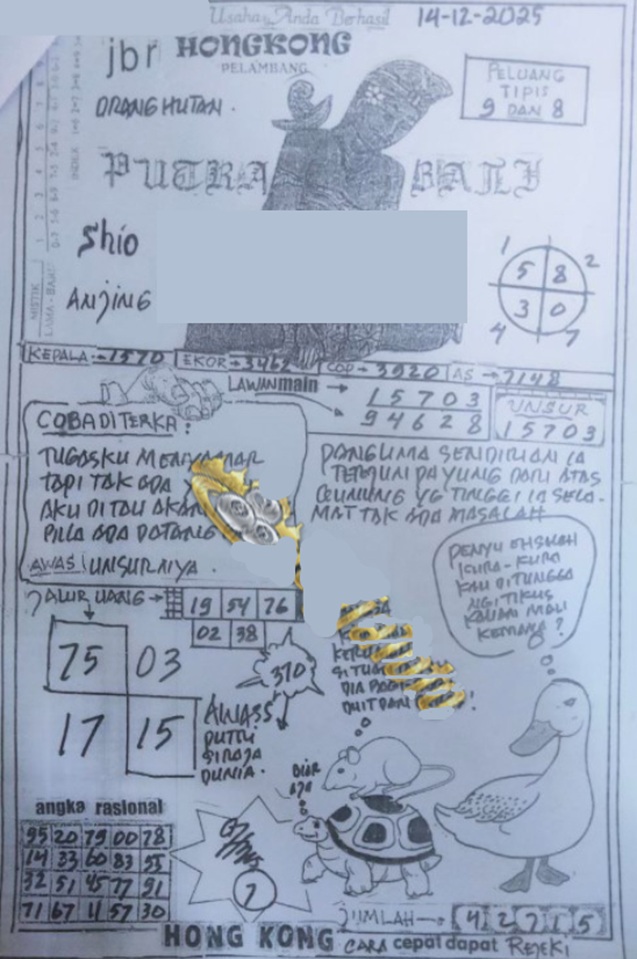 Usaha Anda Berhasil 14-12-2025
jbr HONGKONG
PELAMBANG
ORANG HUTAN.
PELUANG
TIPIS
9 DAN 8
PUTRA BALI
Shio
ANJING
1 2
5 8
3 0
4 7
MISTIK
LAMA - BARU
INDEX
KEPALA → 1570 EKOR → 3462 COP → 3920 AS → 7148
LAWAN main → 15703
94628
UNSUR
15703
COBA DITERKA:
TUGASKU
TAPI TAK ADA
AKU DI TAU AKAN
BILA ADA DATANG
AWAS! UNSURNIYA.
PANGLIMA SENDIRIAN IA
TERJUN PAYUNG DARI ATAS
GUNUNG YG TINGGI IA SELA-
MAT TAK ADA MASALAH
PENYU
KURA-KURA
KAU DITUNGGA
NGI TIKUS
KALIAN MAU
KEMANA?
JALUR UANG → 19 54 76
02 38
75 03
17 15
370
AWASS
PUTU
SIRAJA
DUNIA.
BIAR
AJA
angka rasional
95 20 79 00 78
14 33 60 83 55
32 51 45 77 91
71 67 11 57 30
7
JUMLAH → 4 2 7 1 5
HONG KONG CARA cepat dapat REJEKI